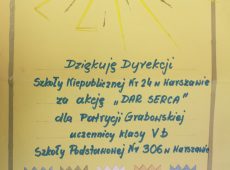 Dziękuję Dyrekcji
Szkoły Niepublicznej Nr 24 w Warszawie
za akcję „DAR SERCA”
dla Patrycji Grabowskiej
uczennicy klasy V b
Szkoły Podstawowej Nr 306 w Warszawie